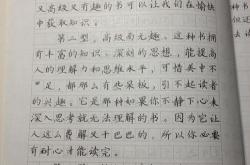 又高级又有趣的书可以让我们在愉快
中获取知识。
第二型,高级而无趣。这种书拥
有丰富的知识、深刻的思想,能提高
人的理解力和思维水平,可惜美中不
足,都那么有些呆板,引不起读者
的兴趣。它是那种如果你不静下心来
深入思考就无法理解的书。因为它让
人这么费解又干巴巴的,所以你必要
有耐心才能读完。